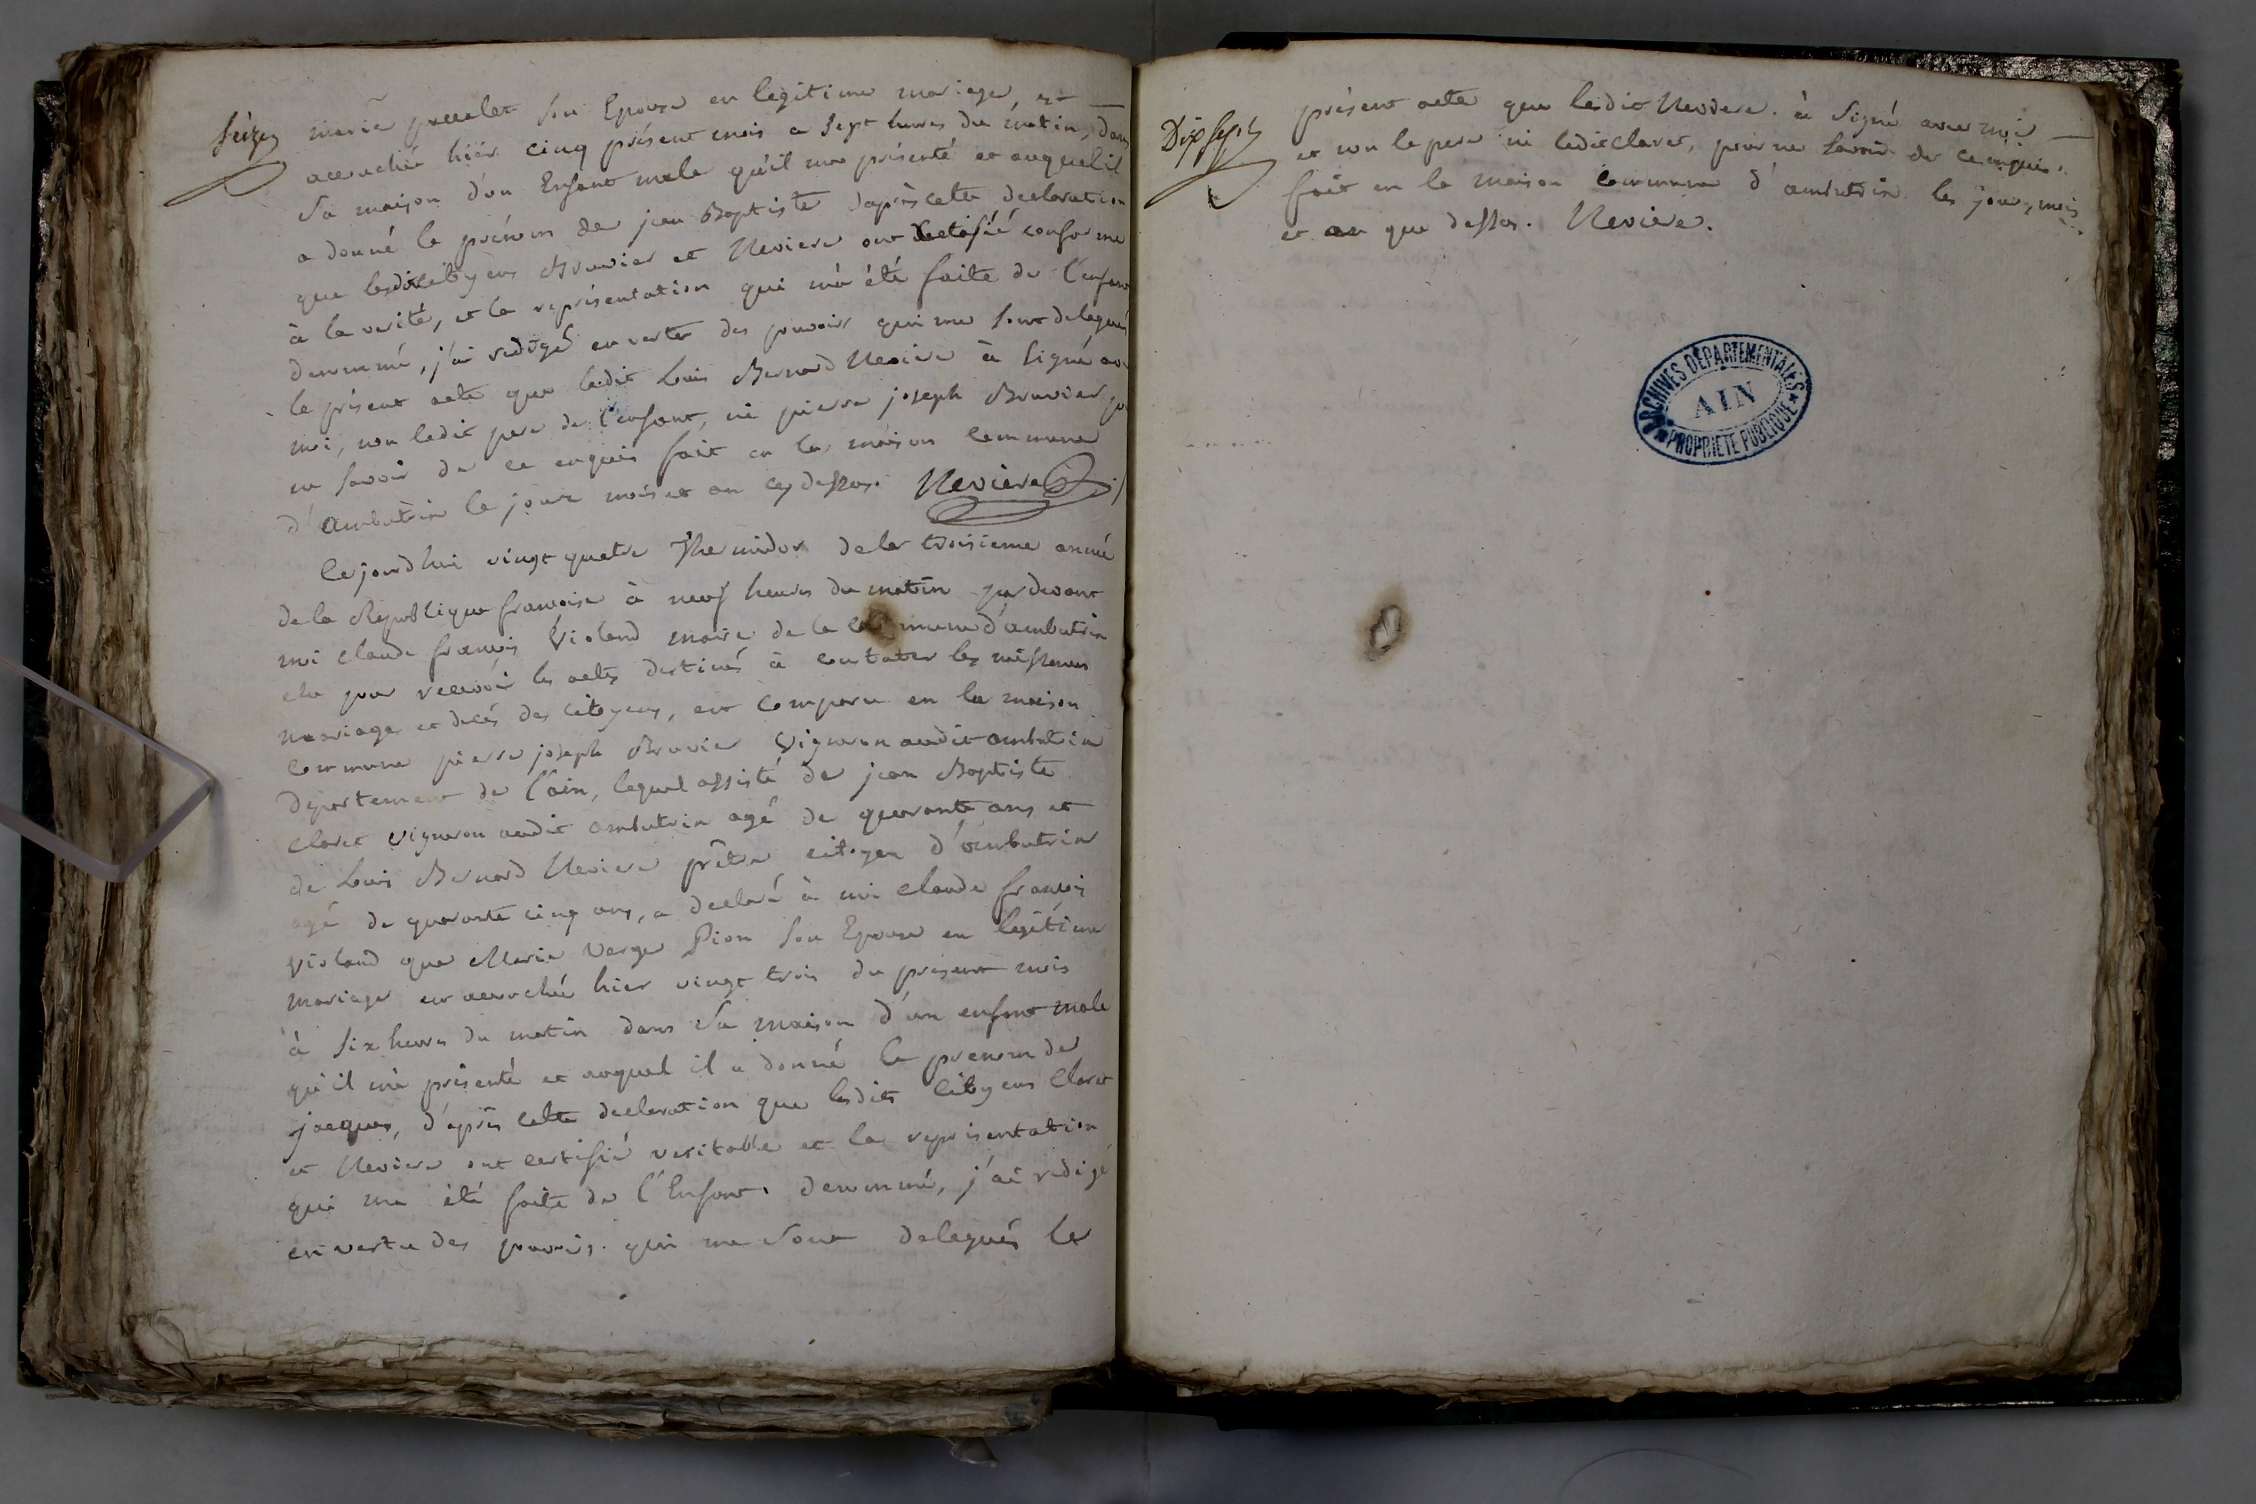 seize
marie pocculet son Epouse en legitime mariage est
accouchée hiér cinq présent mois a sept heures du matin, dans
sa maison d'un Enfant male qu'il m'a présenté et auquel il
a donné le prénom de jean Baptiste d'après cette declaration
que lesdits citoyens Bruvier et Neviere ont certifié conforme
à la verité, et la représentation qui m'a été faite de l'enfant
denommé, j'ai redigé en vertu des pouvoirs qui me sont delegués
le présent acte que ledit Louis Bernard Neviere à signé avec
moi, non ledit pere de l'enfant, ni pierre joseph Bruvier pr
ne savoir de ce enquis fait en la maison commune
d'ambutrin le jour mois et an cy dessus. Neviere
Cejourdhui vingt quatre Thermidor de la troisieme année
de la Republique francoise à neuf heures du matin pardevant
moi claude francois Violand maire de la commune d'ambutrin
elu pour recevoir les actes destinés à constater les naissances
mariage et decés des citoyens, est comparu en la maison
commune pierre joseph Bruvier Vigneron audit ambutrin
departement de l'ain, lequel assisté de jean Baptiste
claret vigneron audit ambutrin agé de quarante ans et
de Louis Bernard Neviere prêtre citoyen d'ambutrin
agé de quarante cinq ans, a declaré à moi claude francois
violand que Marie Verge Pion son Epouse en legitime
mariage est accouchée hier vingt trois du present mois
à six heures du matin dans sa maison d'un enfant male
qu'il m'a présenté et auquel il a donné le prenom de
jacques, d'après cette declaration que lesdits Citoyens Claret
et Neviere ont certifié veritable et la représentation
qui ma été faite de l'Enfant denommé, j'ai redigé
en vertu des pouvoirs qui me sont delegués le
Dix sept
présent acte que ledit Neviere à signé avec moi
et non le pere ni ledit claret, pour ne savoir de ce enquis.
fait en la maison commune d'ambutrin les jour, mois
et an que dessus. Neviere.
ARCHIVES DÉPARTEMENTALES
AIN
PROPRIÉTÉ PUBLIQUE